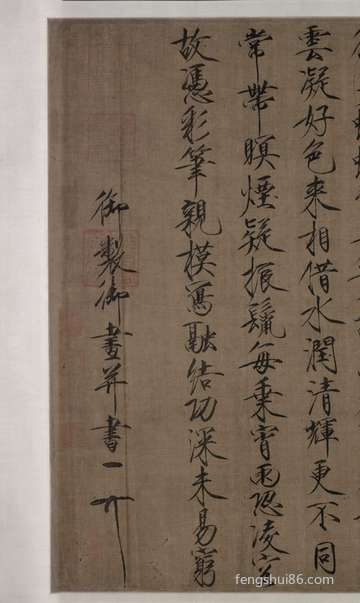 雲凝好色來相借水潤清輝更不同
常帶暝煙疑振鬣每乘宵雨恐凌空
故憑彩筆親模寫融結功深未易窮
御製御畫并書
fengshui86.com